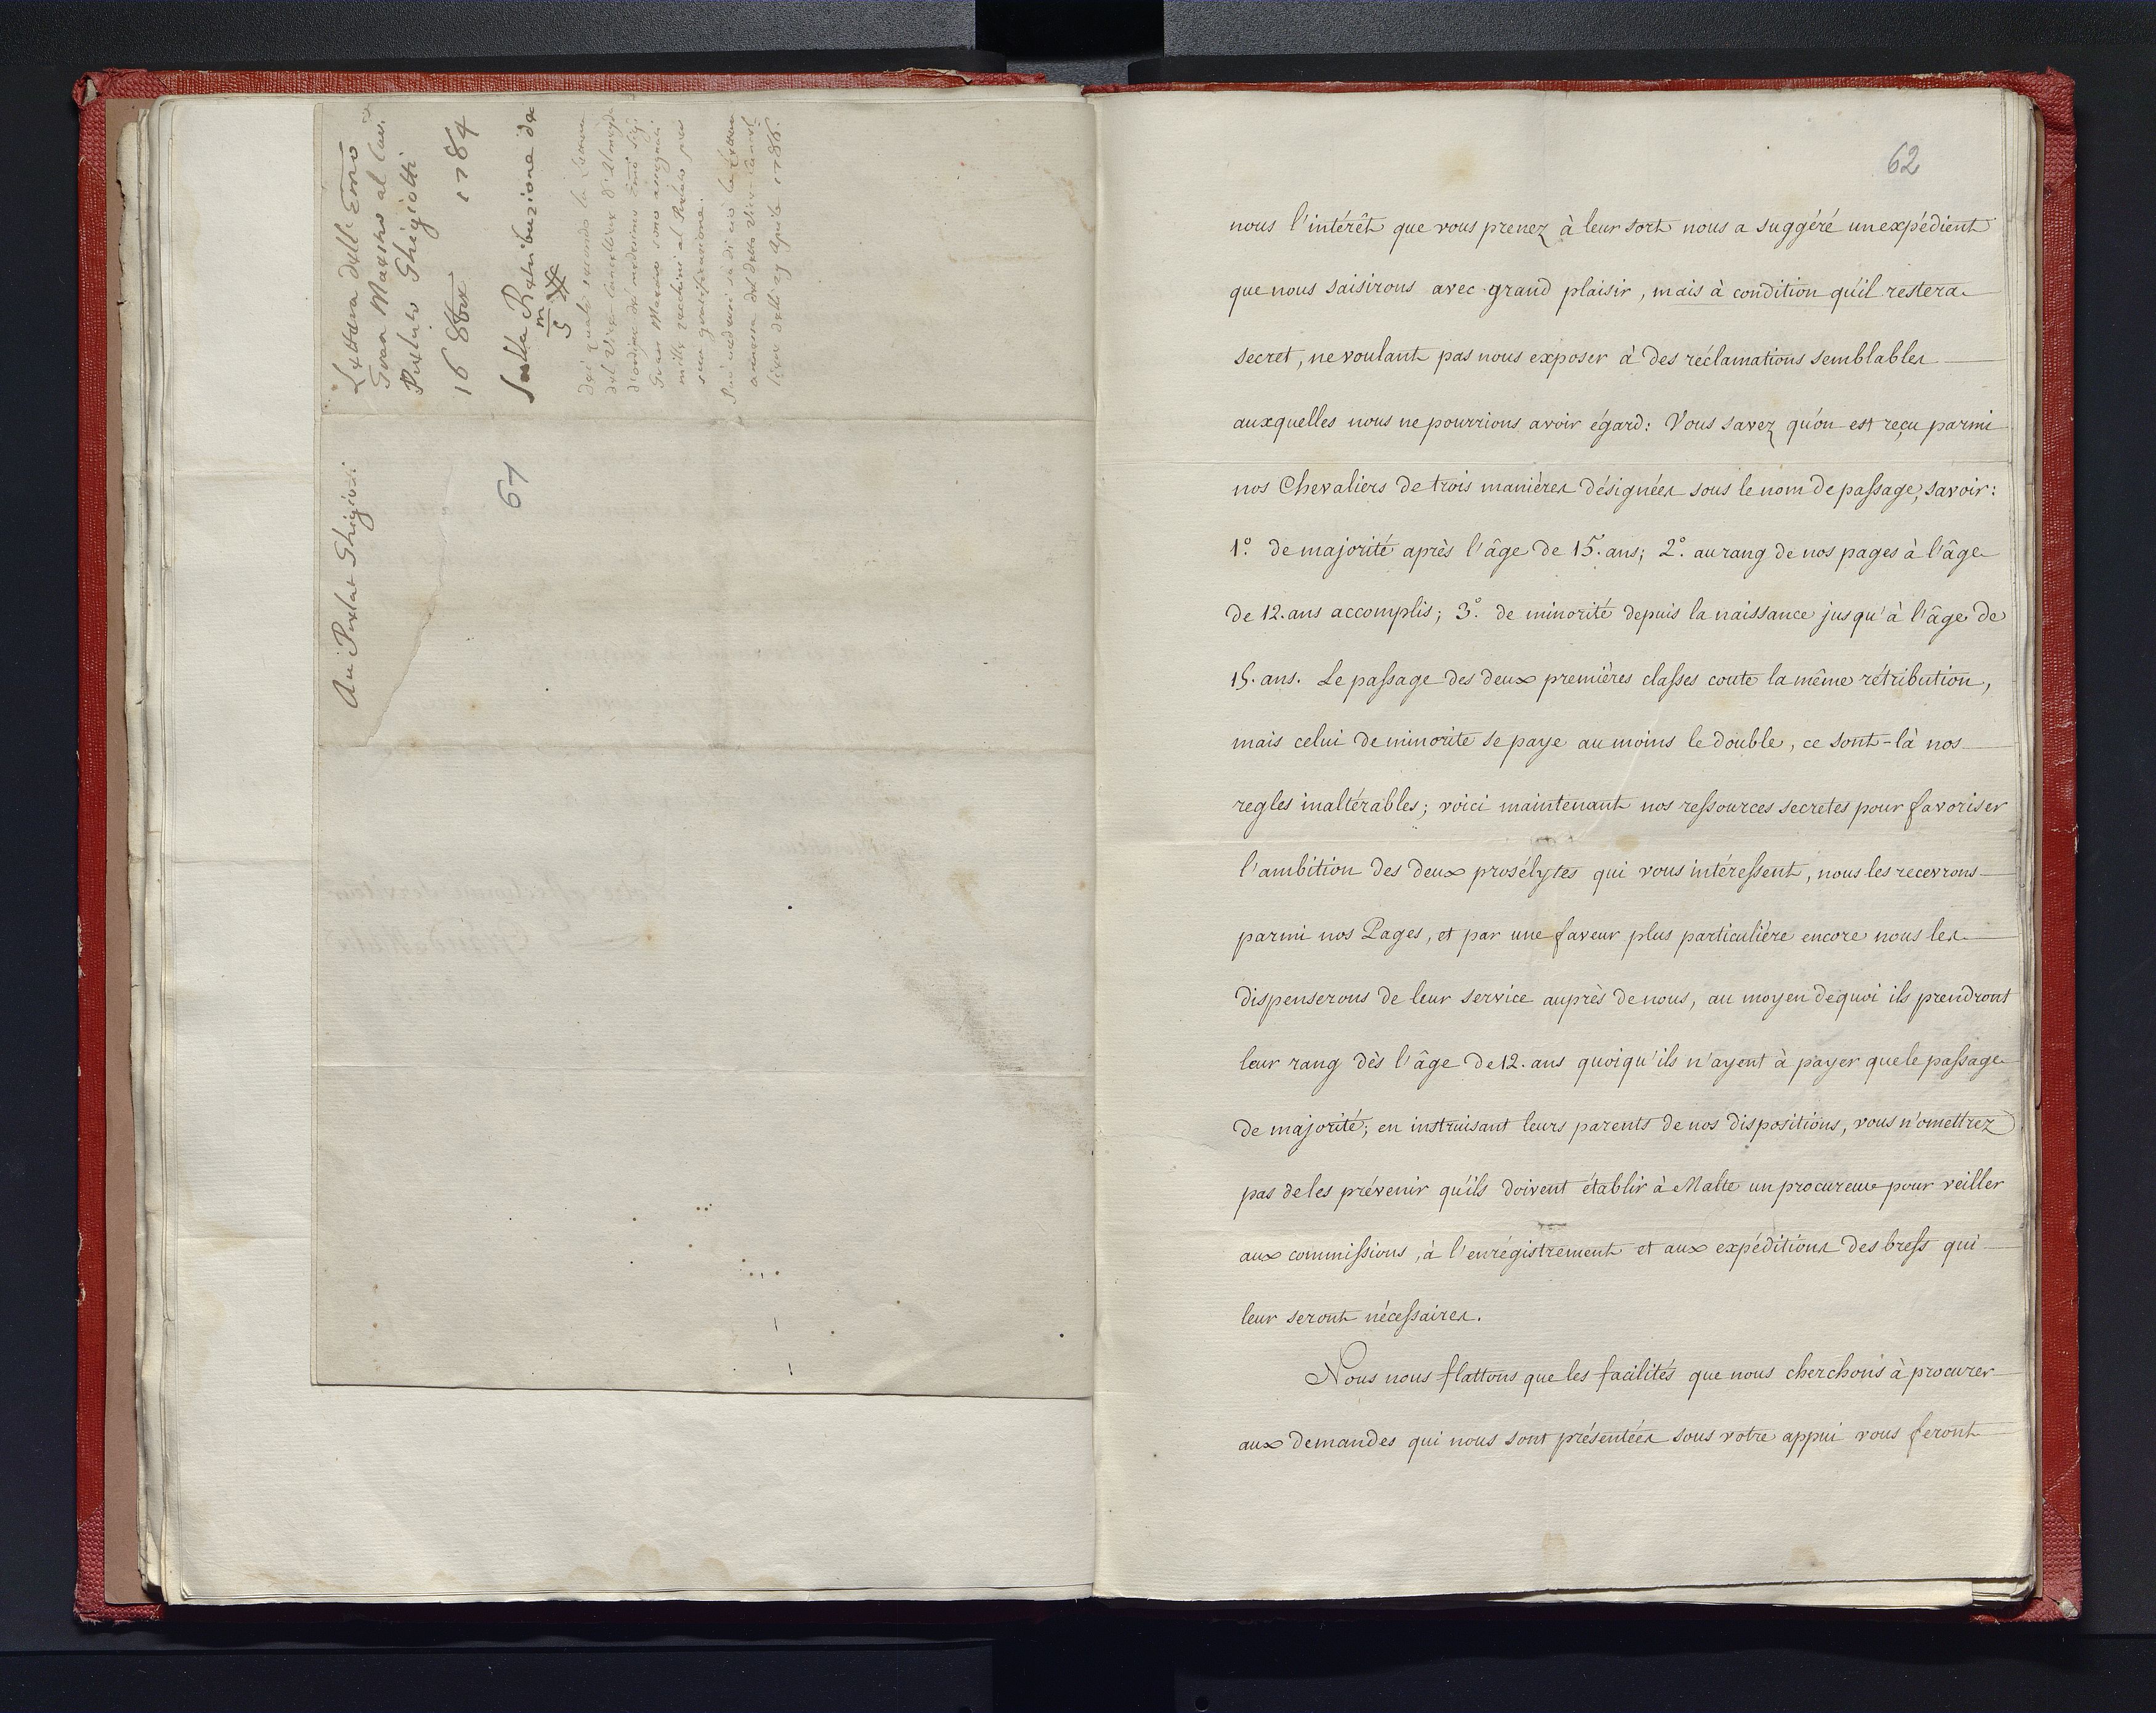 Lettera dell: Emõ
Gran Maestro al Cav.
Prelato Ghigiotti
16 8bre 1784
Sulla Retribuzione de
m
5 ##
dei quali secondo la Lettera
del Vice-Cancelliere d'Almeyda
d'ordine del medesimo Emõ Sig.
Gran Maestro sono assegnati
mille zecchini al Prelato per
sua gratificazione.
annessa del detto Vice-Cancel
liere delli 29 Aprile 1786.
Au Prelat Ghigiotti
61
62
nous l'intérêt que vous prenez à leur sort nous a suggéré un expédient
que nous saisirons avec grand plaisir, mais à condition qu'il restera
secret, ne voulant pas nous exposer à des réclamations semblables
auxquelles nous ne pourrions avoir égard: Vous savez qu'on est reçu parmi
nos Chevaliers de trois manières désignées sous le nom de passage, savoir:
1.° de majorité après l'âge de 15. ans; 2.° au rang de nos pages à l'âge
de 12. ans accomplis; 3.° de minorité depuis la naissance jusqu'à l'âge de
15. ans. Le passage des deux premières classes coute la même rétribution,
mais celui de minorité se paye au moins le double, ce sont-là nos
regles inaltérables; voici maintenant nos ressources secretes pour favoriser
l'ambition des deux prosélytes qui vous intéressent, nous les recevrons
parmi nos Pages, et par une faveur plus particulière encore nous les
dispenserons de leur service auprès de nous, au moyen dequoi ils prendront
leur rang dès l'âge de 12. ans quoiqu'ils n'ayent à payer que le passage
de majorité; en instruisant leurs parents de nos dispositions, vous n'omettrez
pas de les prévenir qu'ils doivent établir à Malte un procureur pour veiller
aux commissions, à l'enrégistrement et aux expéditions des brefs qui
leur seront nécessaires.
Nous nous flattons que les facilités que nous cherchons à procurer
aux demandes qui nous sont présentées sous votre appui vous feront